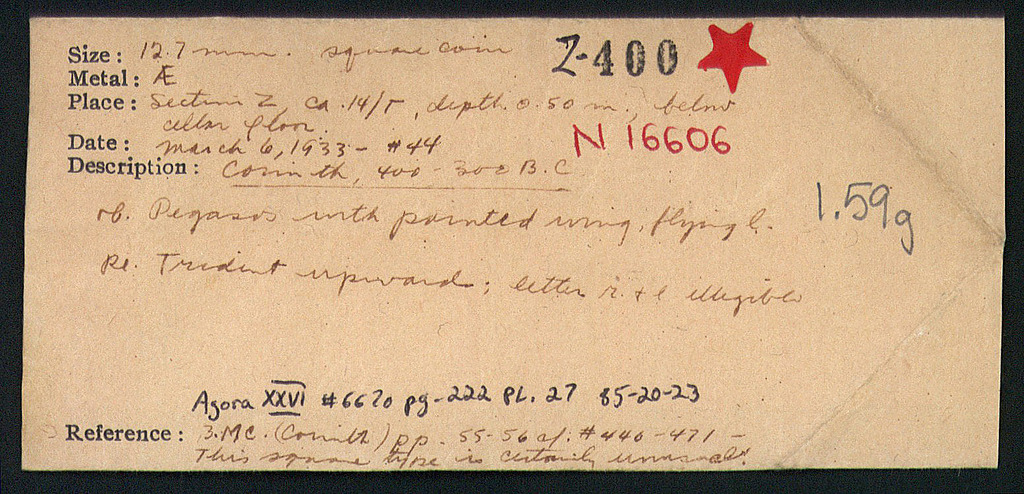 Size: 12.7 mm. square coin
Z-400
Metal: Æ
Place: Section Z, ca. 14/Γ, depth 0.50 m. below
cellar floor.
N 16606
Date: March 6, 1933 - #44
Description: Corinth, 400-300 B.C.
1.59g
ob. Pegasos with pointed wing, flying l.
Re. Trident upward; letter r. + l illegible
Agora XXVI #6670 pg-222 PL. 27 85-20-23
Reference: B.M.C. (Corinth) pp. 55-56 cf. #446-471 -
This square type is certainly unusual.